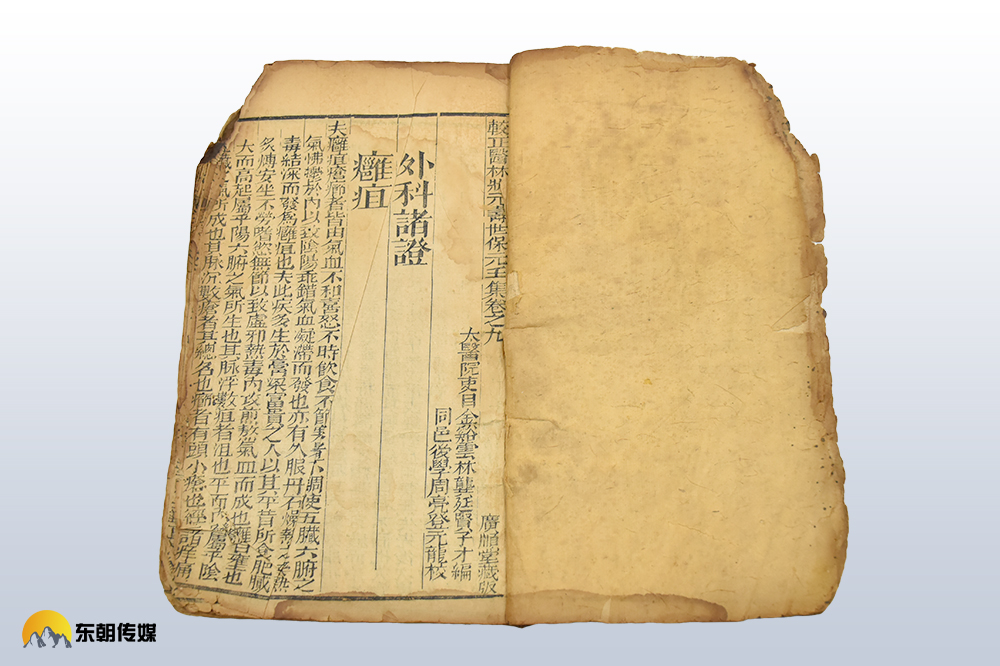 較正醫林狀元壽世保元壬集卷之九
太醫院吏目金谿雲林龔廷賢子才編
同邑後學周亮登元龍校
廣順堂藏版
外科諸證
癰疽
夫癰疽瘡癤者皆由氣血不和喜怒不時飲食不節寒暑不調使五臟六腑之
氣怫鬱於內以致陰陽乖錯氣血凝滯而發也亦有久服丹石燥熱之藥熱
毒結深而發為癰疽也夫此疾多生於膏粱富貴之人以其平昔所食肥膩
炙煿安坐不勞嗜慾無節以致虛邪熱毒內攻煎熬氣血而成也癰者壅也
大而高起屬乎陽六腑之氣所生也其脉浮數疽者沮也平而內發屬乎陰
氣所成也其脉沉數瘡者其總名也癤者有頭小瘡也經
东朝传媒